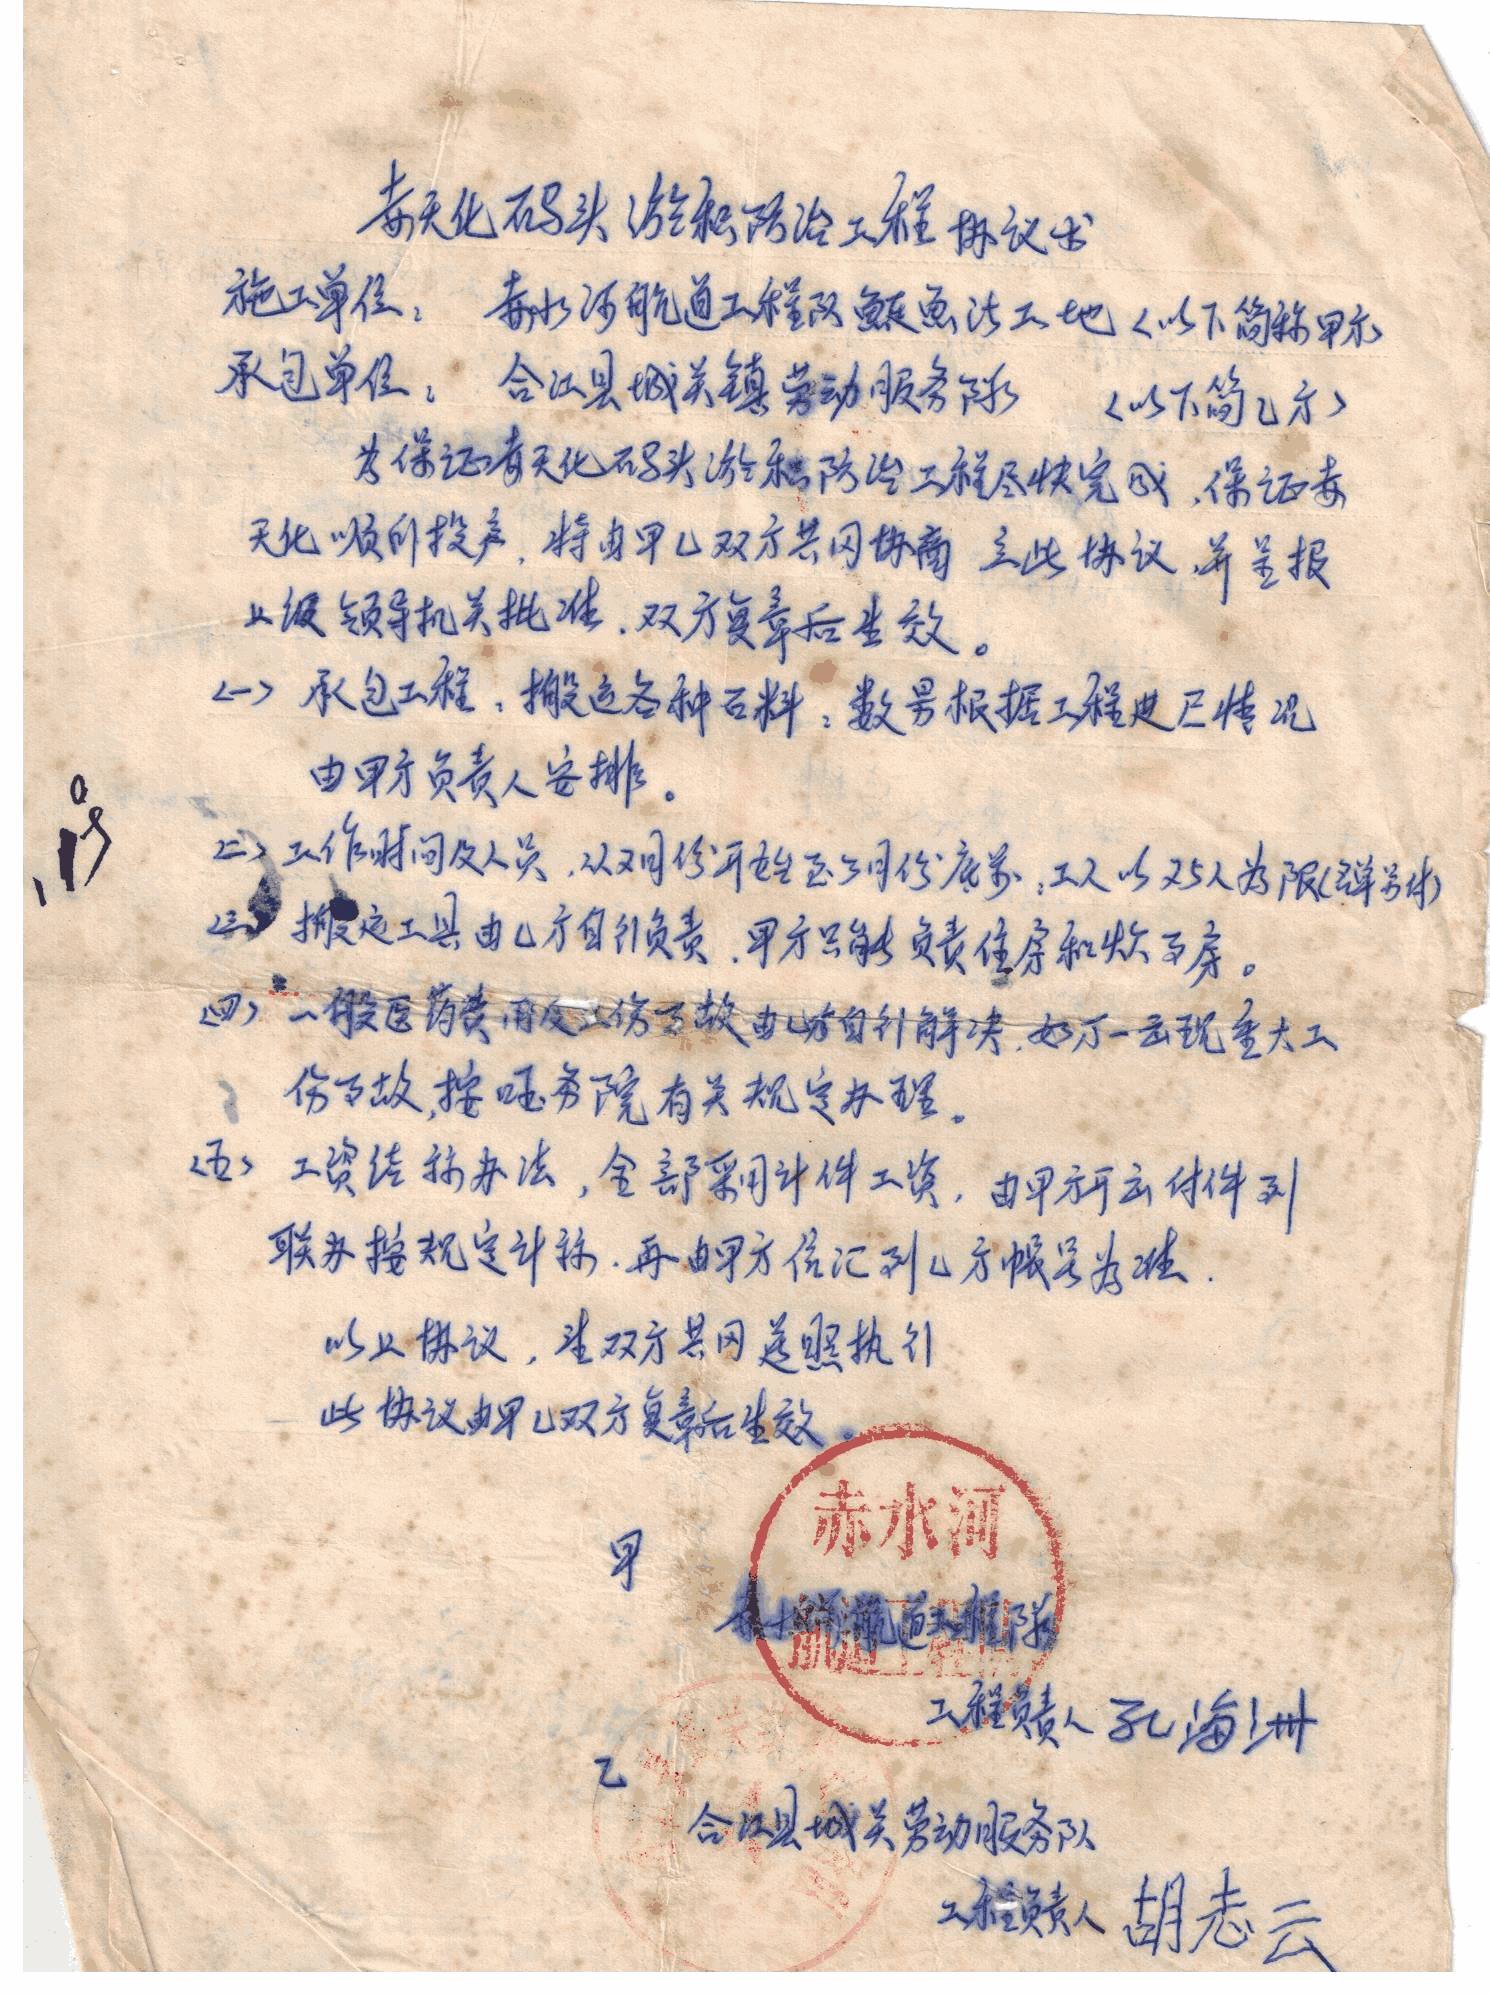 赤天化码头淤积防治工程协议书
施工单位：赤水河航道工程队鲢鱼沱工地（以下简称甲方
承包单位：合江县城关镇劳动服务队（以下简乙方）
为保证赤天化码头淤积防治工程尽快完成，保证赤
天化顺利投产，特由甲乙双方共同协商立此协议，并呈报
上级领导机关批准，双方复章后生效。
（一）承包工程：搬运各种石料：数量根据工程进尺情况
由甲方负责人安排。
（二）工作时间及人员，从2月份开始至5月份底前：工人以25人为限（名单另付）
（三）搬运工具由乙方自行负责，甲方只能负责住房和炊事房。
（四）一般医药费用及工伤事故由乙方自行解决，如万一出现重大工
伤事故，按国务院有关规定办理。
（五）工资结称办法，全部采用计件工资，由甲方开出付件到
联办按规定计称，再由甲方信汇到乙方帐号为准．
以上协议，望双方共同遵照执行
此协议由甲乙双方复章后生效。
赤水河
甲
赤水河航道工程队
航道工程队
工程负责人 孔海洲
乙
合江县城关劳动服务队
工程负责人 胡志云